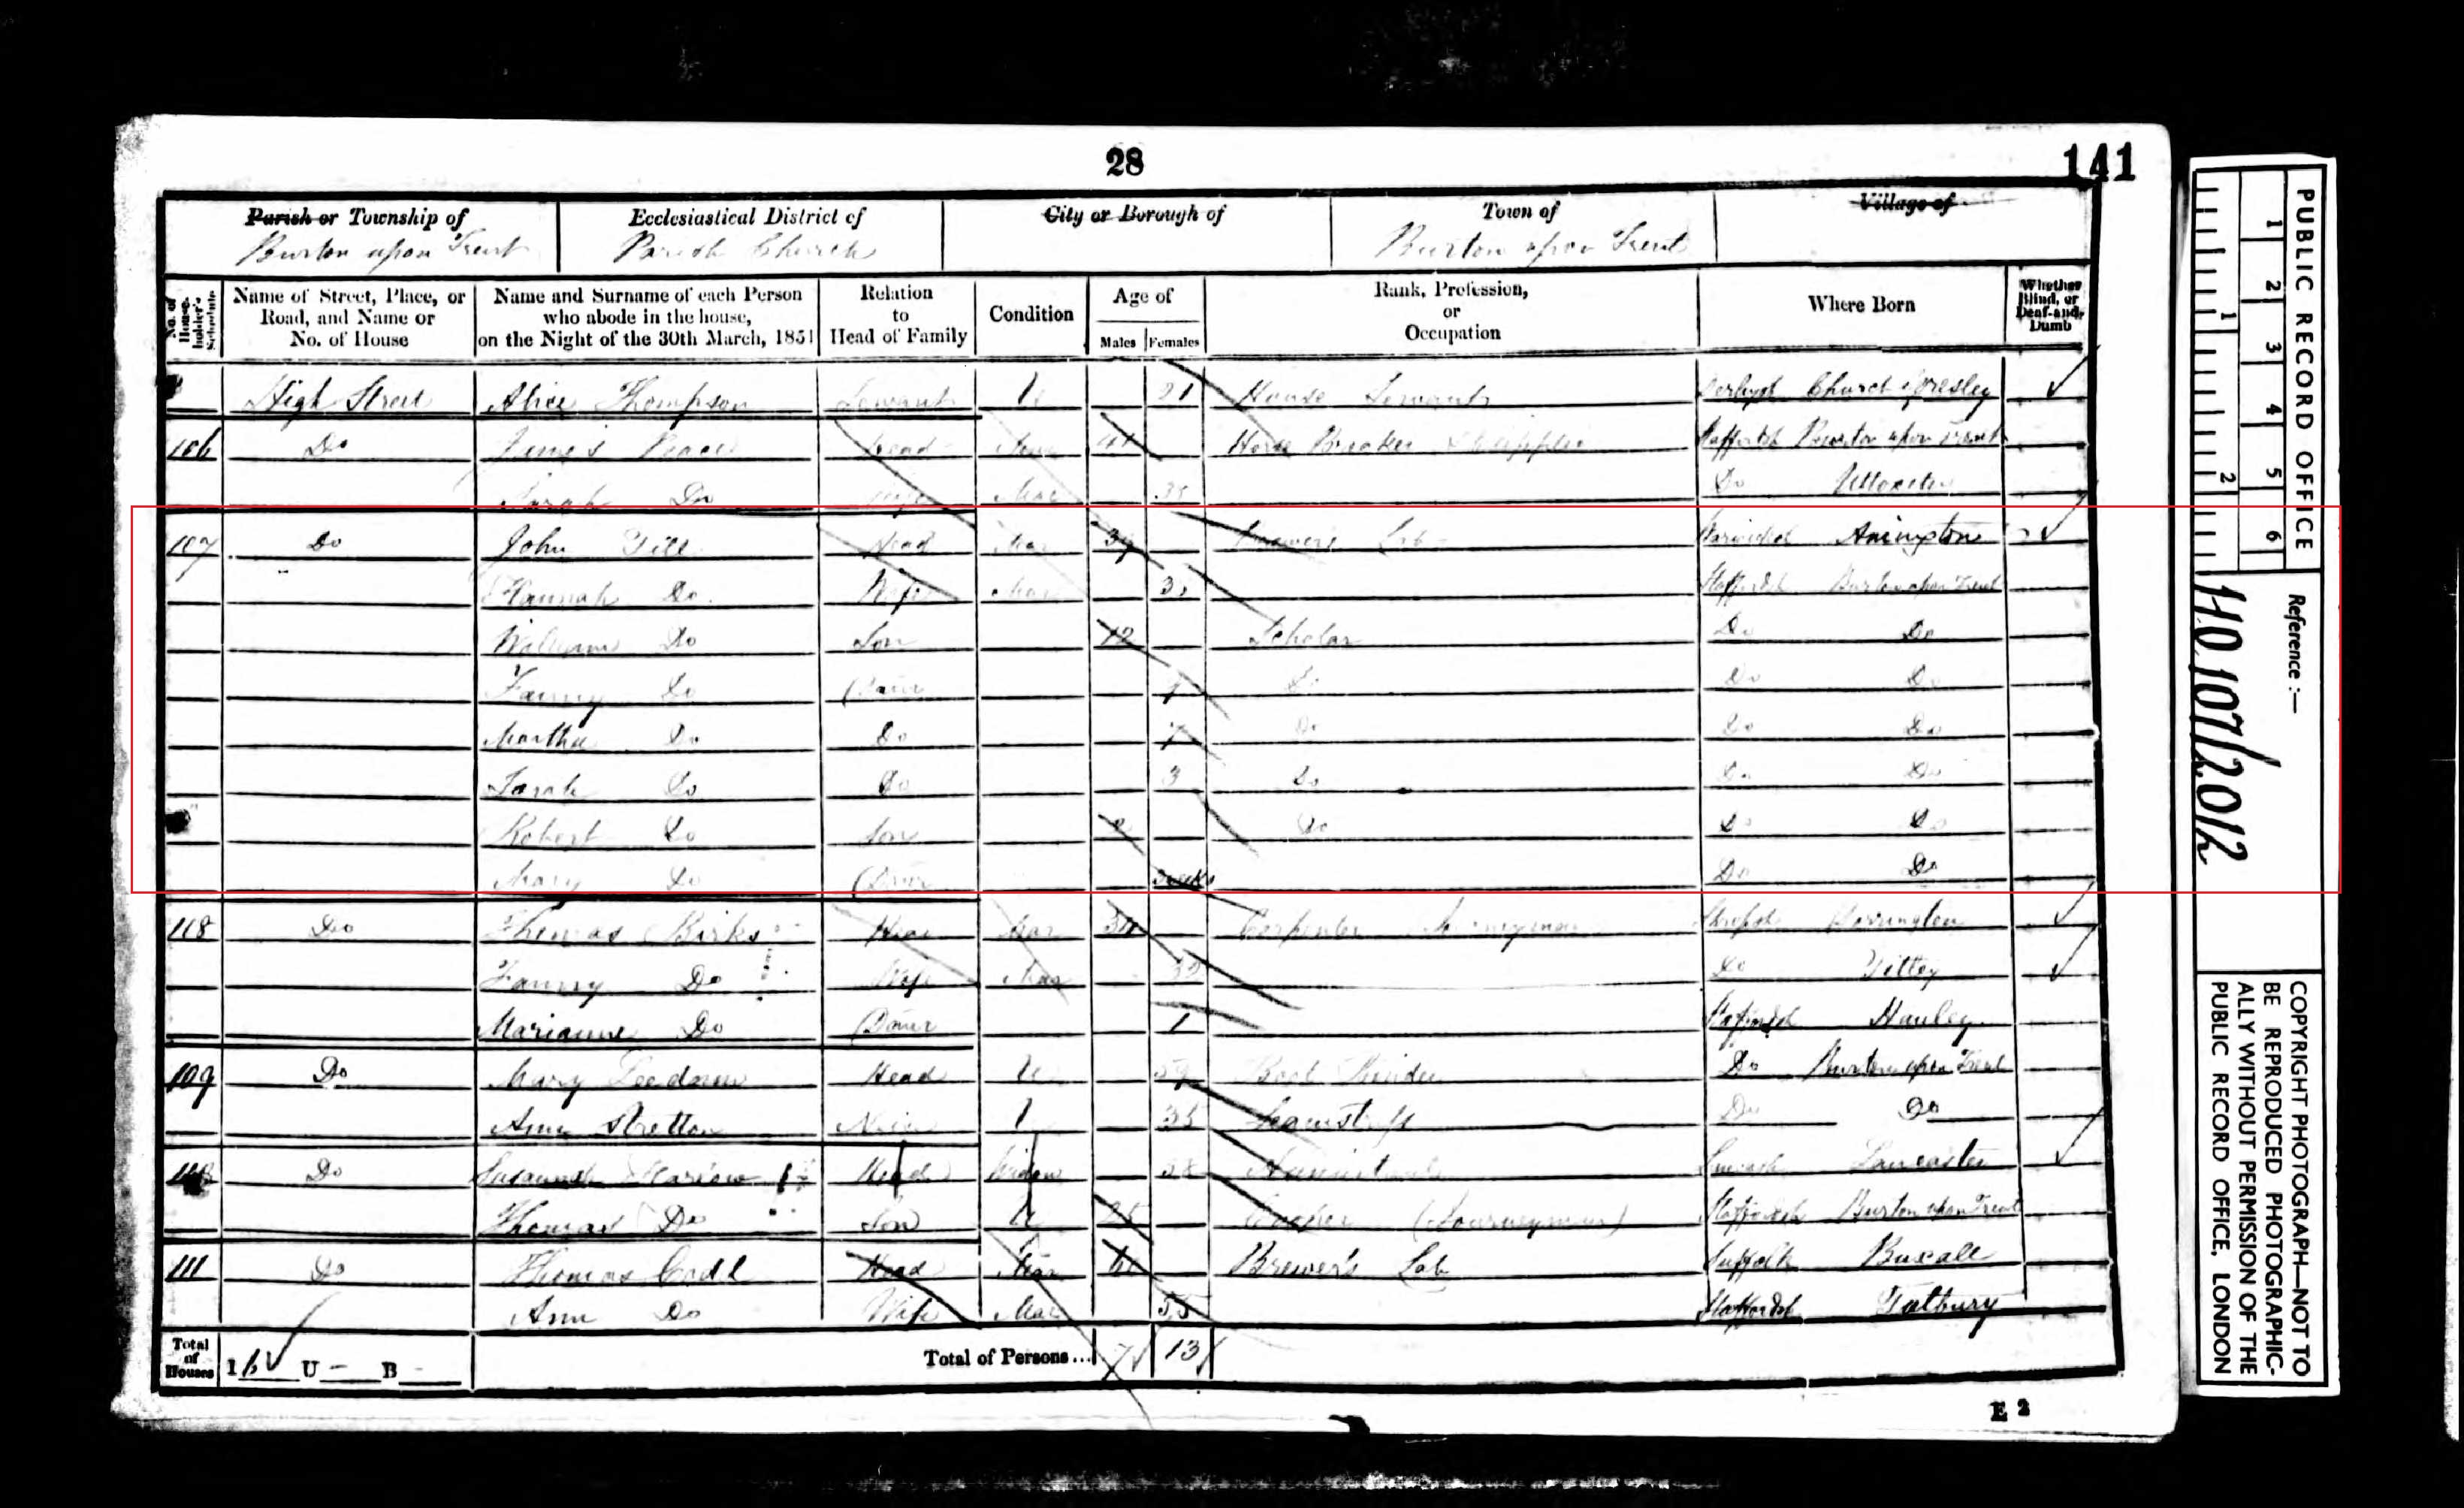 28
141
Parish or Township of
Burton upon Trent
Ecclesiastical District of
Parish Church
City or Borough of
Town of
Burton upon Trent
Village of
No. of House-holder's Schedule
Name of Street, Place, or Road, and Name or No. of House
Name and Surname of each Person who abode in the house, on the Night of the 30th March, 1851
Relation to Head of Family
Condition
Age of
Males Females
Rank, Profession, or Occupation
Where Born
Whether Blind, or Deaf-and-Dumb
High Street Alice Thompson Servant U 21 House Servant Derbysh Church Gresley
106 Do James Head Mar 41 Horse Breaker Staffordsh Burton upon Trent
Sarah Do Wife Mar 35 Do Uttoxeter
107 Do John Till Head Mar 39 Brewer's Lab Warwicksh
Hannah Do Wife Mar Staffordsh Burton upon Trent
William Do Son 12 Scholar Do Do
Fanny Do Daur Do Do Do
Martha Do Do 7 Do Do Do
Sarah Do Do 3 Do Do Do
Robert Do Son Do Do Do
Mary Do Daur weeks Do Do
108 Do Thomas Birks Head Mar Carpenter Journeyman Shropsh
Fanny Do Wife Mar Do
Marianne Do Daur 1 Staffordsh Hanley
109 Do Mary Head U Do Burton upon Trent
Ann Stretton Niece 35 Seamstress Do Do
110 Do Head Widow Lancaster
Thomas Do Son U 25 (Journeyman) Staffordsh Burton upon Trent
111 Do Thomas Head Mar Brewer's Lab Suffolk
Ann Do Wife Mar 55 Staffordsh Tutbury
Total of Houses
1 6 U - B -
Total of Persons... 7 13
E 2
PUBLIC RECORD OFFICE
1 2 3 4 5 6
1 2
Reference :—
HO 107/2012
COPYRIGHT PHOTOGRAPH—NOT TO BE REPRODUCED PHOTOGRAPHIC-ALLY WITHOUT PERMISSION OF THE PUBLIC RECORD OFFICE, LONDON